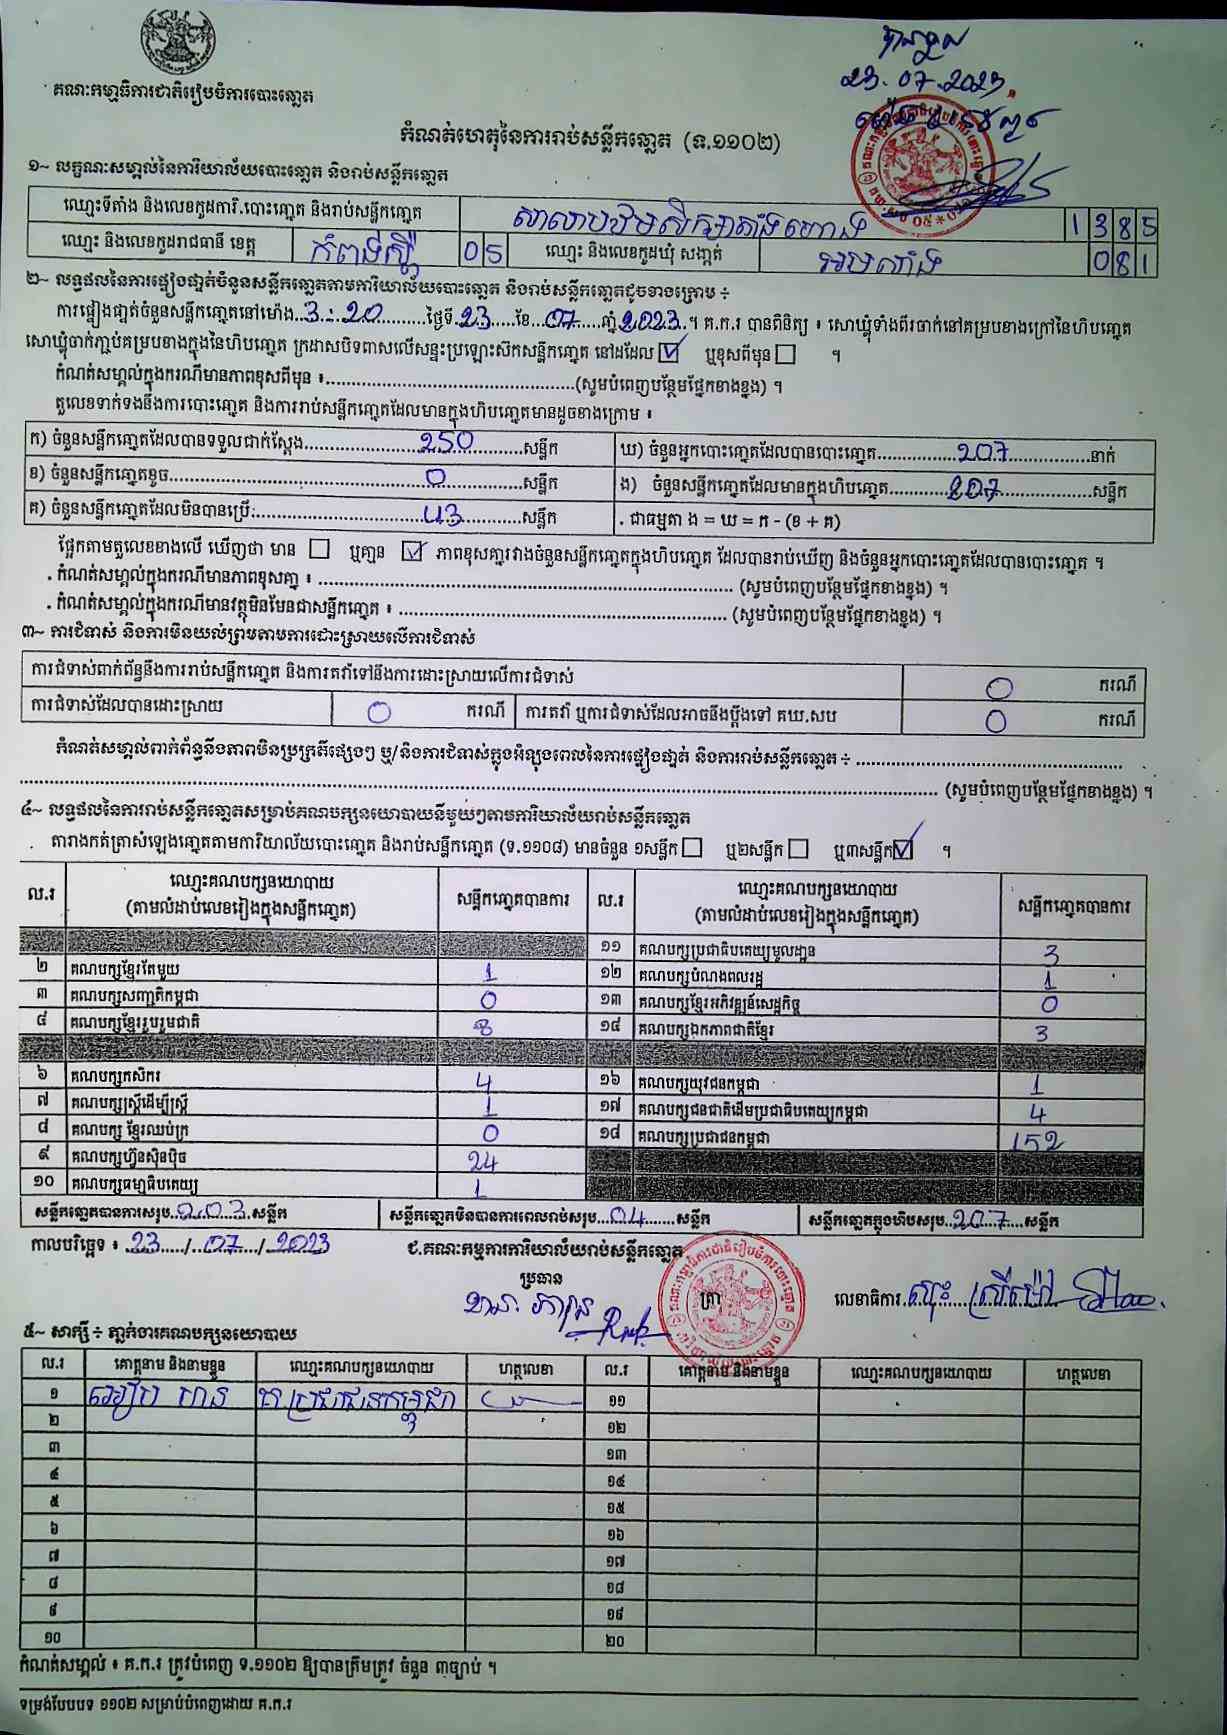 គណៈកម្មាធិការជាតិរៀបចំការបោះឆ្នោត
23.07.2023.
កំណត់ហេតុនៃការរាប់សន្លឹកឆ្នោត (ទ.១១០២)
១~ លក្ខណៈសម្គាល់នៃការិយាល័យបោះឆ្នោត និងរាប់សន្លឹកឆ្នោត
ឈ្មោះទីតាំង និងលេខកូដការិ.បោះឆ្នោត និងរាប់សន្លឹកឆ្នោត 1385
ឈ្មោះ និងលេខកូដរាជធានី ខេត្ត កំពង់ស្ពឺ 05 ឈ្មោះ និងលេខកូដឃុំ សង្កាត់ 081
២~ លទ្ធផលនៃការផ្ទៀងផ្ទាត់ចំនួនសន្លឹកឆ្នោតតាមការិយាល័យបោះឆ្នោត និងរាប់សន្លឹកឆ្នោតដូចខាងក្រោម ÷
ការផ្ទៀងផ្ទាត់ចំនួនសន្លឹកឆ្នោតនៅម៉ោង 3:20 ថ្ងៃទី 23 ខែ 07 ឆ្នាំ 2023 ។ គ.ក.រ បានពិនិត្យ ៖ សោឃ្លុំទាំងពីរចាក់នៅគម្របខាងក្រៅនៃហិបឆ្នោត
សោឃ្លុំចាក់ភ្ជាប់គម្របខាងក្នុងនៃហិបឆ្នោត ក្រដាសបិទពាសលើសន្ទះប្រឡោះសិកសន្លឹកឆ្នោត នៅដដែល ☑ ឬខុសពីមុន ☐ ។
កំណត់សម្គាល់ក្នុងករណីមានភាពខុសពីមុន ៖ (សូមបំពេញបន្ថែមផ្នែកខាងខ្នង) ។
តួលេខទាក់ទងនឹងការបោះឆ្នោត និងការរាប់សន្លឹកឆ្នោតដែលមានក្នុងហិបឆ្នោតមានដូចខាងក្រោម ៖
ក) ចំនួនសន្លឹកឆ្នោតដែលបានទទួលជាក់ស្តែង 250 សន្លឹក ឃ) ចំនួនអ្នកបោះឆ្នោតដែលបានបោះឆ្នោត 207 នាក់
ខ) ចំនួនសន្លឹកឆ្នោតខូច 0 សន្លឹក ង) ចំនួនសន្លឹកឆ្នោតដែលមានក្នុងហិបឆ្នោត 207 សន្លឹក
គ) ចំនួនសន្លឹកឆ្នោតដែលមិនបានប្រើ: 43 សន្លឹក . ជាធម្មតា ង = ឃ = ក - (ខ + គ)
ផ្អែកតាមតួលេខខាងលើ ឃើញថា មាន ☐ ឬគ្មាន ☑ ភាពខុសគ្នារវាងចំនួនសន្លឹកឆ្នោតក្នុងហិបឆ្នោត ដែលបានរាប់ឃើញ និងចំនួនអ្នកបោះឆ្នោតដែលបានបោះឆ្នោត ។
. កំណត់សម្គាល់ក្នុងករណីមានភាពខុសគ្នា ៖ (សូមបំពេញបន្ថែមផ្នែកខាងខ្នង) ។
. កំណត់សម្គាល់ក្នុងករណីមានវត្ថុមិនមែនជាសន្លឹកឆ្នោត ៖ (សូមបំពេញបន្ថែមផ្នែកខាងខ្នង) ។
៣~ ការជំទាស់ និងការមិនយល់ព្រមតាមការដោះស្រាយលើការជំទាស់
ការជំទាស់ពាក់ព័ន្ធនឹងការរាប់សន្លឹកឆ្នោត និងការតវ៉ាទៅនឹងការដោះស្រាយលើការជំទាស់ 0 ករណី
ការជំទាស់ដែលបានដោះស្រាយ 0 ករណី ការតវ៉ា ឬការជំទាស់ដែលអាចនឹងប្តឹងទៅ គឃ.សប 0 ករណី
កំណត់សម្គាល់ពាក់ព័ន្ធនឹងភាពមិនប្រក្រតីផ្សេងៗ ឬ/និងការជំទាស់ក្នុងអំឡុងពេលនៃការផ្ទៀងផ្ទាត់ និងការរាប់សន្លឹកឆ្នោត ÷
(សូមបំពេញបន្ថែមផ្នែកខាងខ្នង) ។
៤~ លទ្ធផលនៃការរាប់សន្លឹកឆ្នោតសម្រាប់គណបក្សនយោបាយនីមួយៗតាមការិយាល័យរាប់សន្លឹកឆ្នោត
តារាងកត់ត្រាសំឡេងឆ្នោតតាមការិយាល័យបោះឆ្នោត និងរាប់សន្លឹកឆ្នោត (ទ.១១០៨) មានចំនួន ១សន្លឹក ☐ ឬ២សន្លឹក ☐ ឬ៣សន្លឹក ☑ ។
ល.រ ឈ្មោះគណបក្សនយោបាយ (តាមលំដាប់លេខរៀងក្នុងសន្លឹកឆ្នោត) សន្លឹកឆ្នោតបានការ ល.រ ឈ្មោះគណបក្សនយោបាយ (តាមលំដាប់លេខរៀងក្នុងសន្លឹកឆ្នោត) សន្លឹកឆ្នោតបានការ
១១ គណបក្សប្រជាធិបតេយ្យមូលដ្ឋាន 3
២ គណបក្សខ្មែរតែមួយ 1 ១២ គណបក្សបំណងពលរដ្ឋ 1
៣ គណបក្សសញ្ជាតិកម្ពុជា 0 ១៣ គណបក្សខ្មែរអភិវឌ្ឍន៍សេដ្ឋកិច្ច 0
៤ គណបក្សខ្មែររួបរួមជាតិ 8 ១៤ គណបក្សឯកភាពជាតិខ្មែរ 3
៦ គណបក្សកសិករ 4 ១៦ គណបក្សយុវជនកម្ពុជា 1
៧ គណបក្សស្ត្រីដើម្បីស្ត្រី 1 ១៧ គណបក្សជនជាតិដើមប្រជាធិបតេយ្យកម្ពុជា 4
៨ គណបក្ស ខ្មែរឈប់ក្រ 0 ១៨ គណបក្សប្រជាជនកម្ពុជា 152
៩ គណបក្សហ៊្វុនស៊ិនប៉ិច 24
១០ គណបក្សធម្មាធិបតេយ្យ 1
សន្លឹកឆ្នោតបានការសរុប 203 សន្លឹក សន្លឹកឆ្នោតមិនបានការពេលរាប់សរុប 04 សន្លឹក សន្លឹកឆ្នោតក្នុងហិបសរុប 207 សន្លឹក
កាលបរិច្ឆេទ ៖ 23/07/2023 ជ.គណៈកម្មការការិយាល័យរាប់សន្លឹកឆ្នោត
ប្រធាន ត្រា លេខាធិការ
៥~ សាក្សី ÷ ភ្នាក់ងារគណបក្សនយោបាយ
ល.រ គោត្តនាម និងនាមខ្លួន ឈ្មោះគណបក្សនយោបាយ ហត្ថលេខា ល.រ គោត្តនាម និងនាមខ្លួន ឈ្មោះគណបក្សនយោបាយ ហត្ថលេខា
១ គ ប្រជាជនកម្ពុជា ១១
២ ១២
៣ ១៣
៤ ១៤
៥ ១៥
៦ ១៦
៧ ១៧
៨ ១៨
៩ ១៩
១០ ២០
កំណត់សម្គាល់ ៖ គ.ក.រ ត្រូវបំពេញ ទ.១១០២ ឱ្យបានត្រឹមត្រូវ ចំនួន ៣ច្បាប់ ។
ទម្រង់បែបបទ ១១០២ សម្រាប់បំពេញដោយ គ.ក.រ